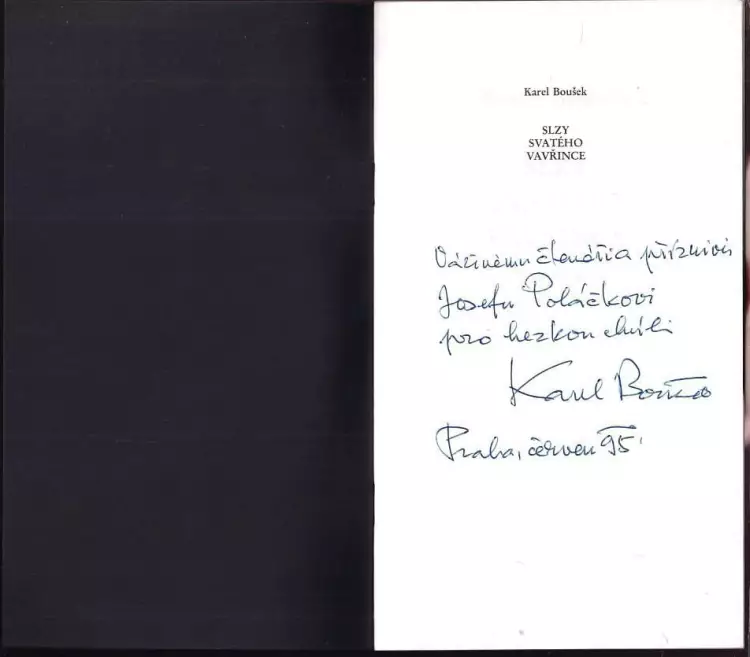 Karel Boušek
SLZY
SVATÉHO
VAVŘINCE
Vážnému čtenáři a příznivci
Josefu Poláčkovi
pro hezkou chvíli
Karel Boušek
Praha, červen 95.